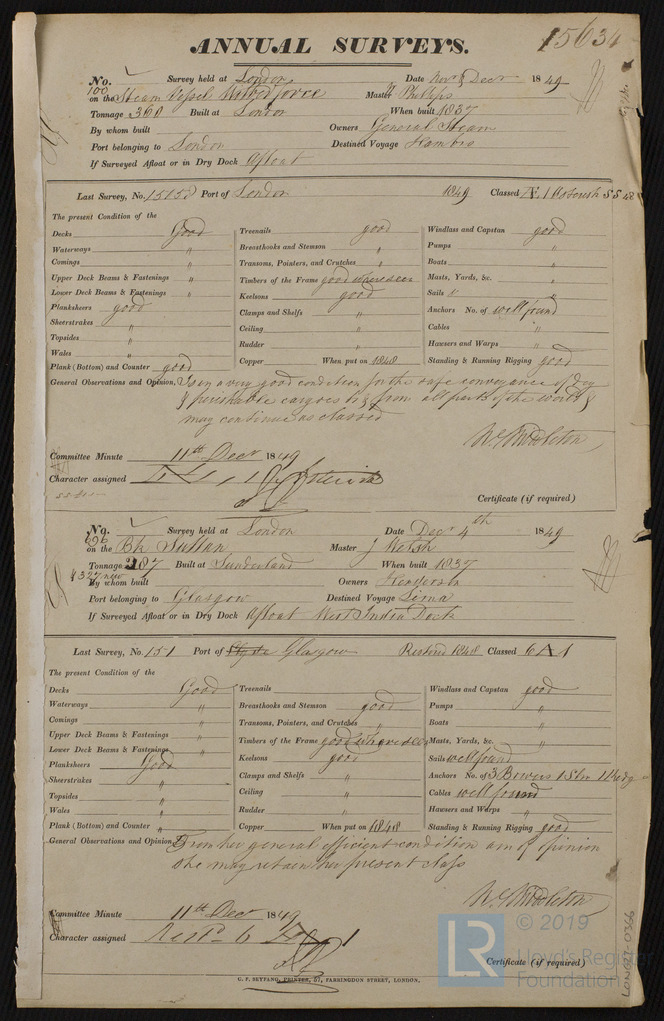 ANNUAL SURVEYS. 15634
No. Survey held at London Date Novr & Decr 1849
100
on the Steam Vessel Wilberforce Master Phillips
Tonnage 360 Built at London When built 1837
By whom built Owners General Steam
Port belonging to London Destined Voyage Hambro
If Surveyed Afloat or in Dry Dock Afloat
Last Survey, No. Port of London 1849 Classed Æ 1
The present Condition of the
Decks Good Treenails good Windlass and Capstan good
Waterways " Breasthooks and Stemson " Pumps "
Comings " Transoms, Pointers, and Crutches " Boats "
Upper Deck Beams & Fastenings " Timbers of the Frame good where seen Masts, Yards, &c. "
Lower Deck Beams & Fastenings " Keelsons good Sails " "
Planksheers good Clamps and Shelfs " Anchors No. of well found
Sheerstrakes " Ceiling " Cables "
Topsides " Rudder " Hawsers and Warps "
Wales " Copper When put on 1848 Standing & Running Rigging good
Plank (Bottom) and Counter good
General Observations and Opinion, Is in a very good condition for the safe conveyance of Dry
& perishable cargoes to & from all parts of the World &
may continue as classed
W Middleton
Committee Minute 11th Decr 1849
Character assigned
Certificate (if required)
No. Survey held at London Date Decr 4th 1849
696
on the Bk Sultan Master J Welsh
Tonnage 287 Built at Sunderland When built 1837
& 327 new
By whom built Owners Henderson
Port belonging to Glasgow Destined Voyage Lima
If Surveyed Afloat or in Dry Dock Afloat West India Dock
Last Survey, No. 151 Port of Clyde Glasgow Restored 1848 Classed 6 A 1
The present Condition of the
Decks Good Treenails Windlass and Capstan good
Waterways " Breasthooks and Stemson good Pumps "
Comings " Transoms, Pointers, and Crutches " Boats "
Upper Deck Beams & Fastenings " Timbers of the Frame good where seen Masts, Yards, &c. "
Lower Deck Beams & Fastenings " Keelsons good Sails well found
Planksheers Good Clamps and Shelfs " Anchors No. of 3 Bowers 1 Str 1 Kedg
Sheerstrakes " Ceiling " Cables well found
Topsides " Rudder " Hawsers and Warps "
Wales " Copper When put on 1848 Standing & Running Rigging good
Plank (Bottom) and Counter "
General Observations and Opinion, From her general efficient condition am of opinion
she may retain her present class
W Middleton
Committee Minute 11th Decr 1849
Character assigned Restd 6 A 1
Certificate (if required)
G. F. SETFANO, PRINTER, 57, FARRINGDON STREET, LONDON.
LR © 2019
Lloyd's Register
Foundation
LON697-0366